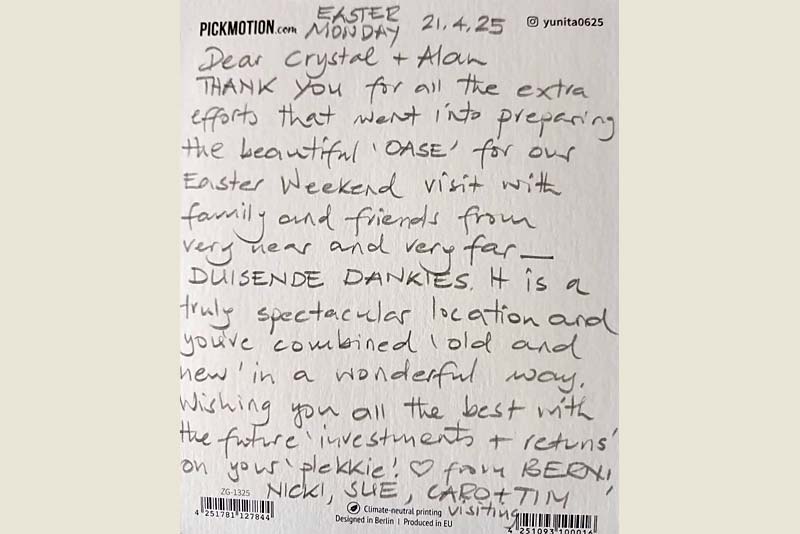 PICKMOTION.com EASTER MONDAY 21.4.25 yunita0625
Dear Crystal + Alan
THANK YOU for all the extra
efforts that went into preparing
the beautiful 'OASE' for our
Easter Weekend visit with
family and friends from
very near and very far —
DUISENDE DANKIES. It is a
truly spectacular location and
you've combined 'old and
new' in a wonderful way.
Wishing you all the best with
the future 'investments + returns'
on your 'plekkie'! ♡ from BERNI,
NICKI, SUE, CARO + TIM
visiting
ZG-1325
4 251781 127844
Climate-neutral printing
Designed in Berlin | Produced in EU
4 251093 100016